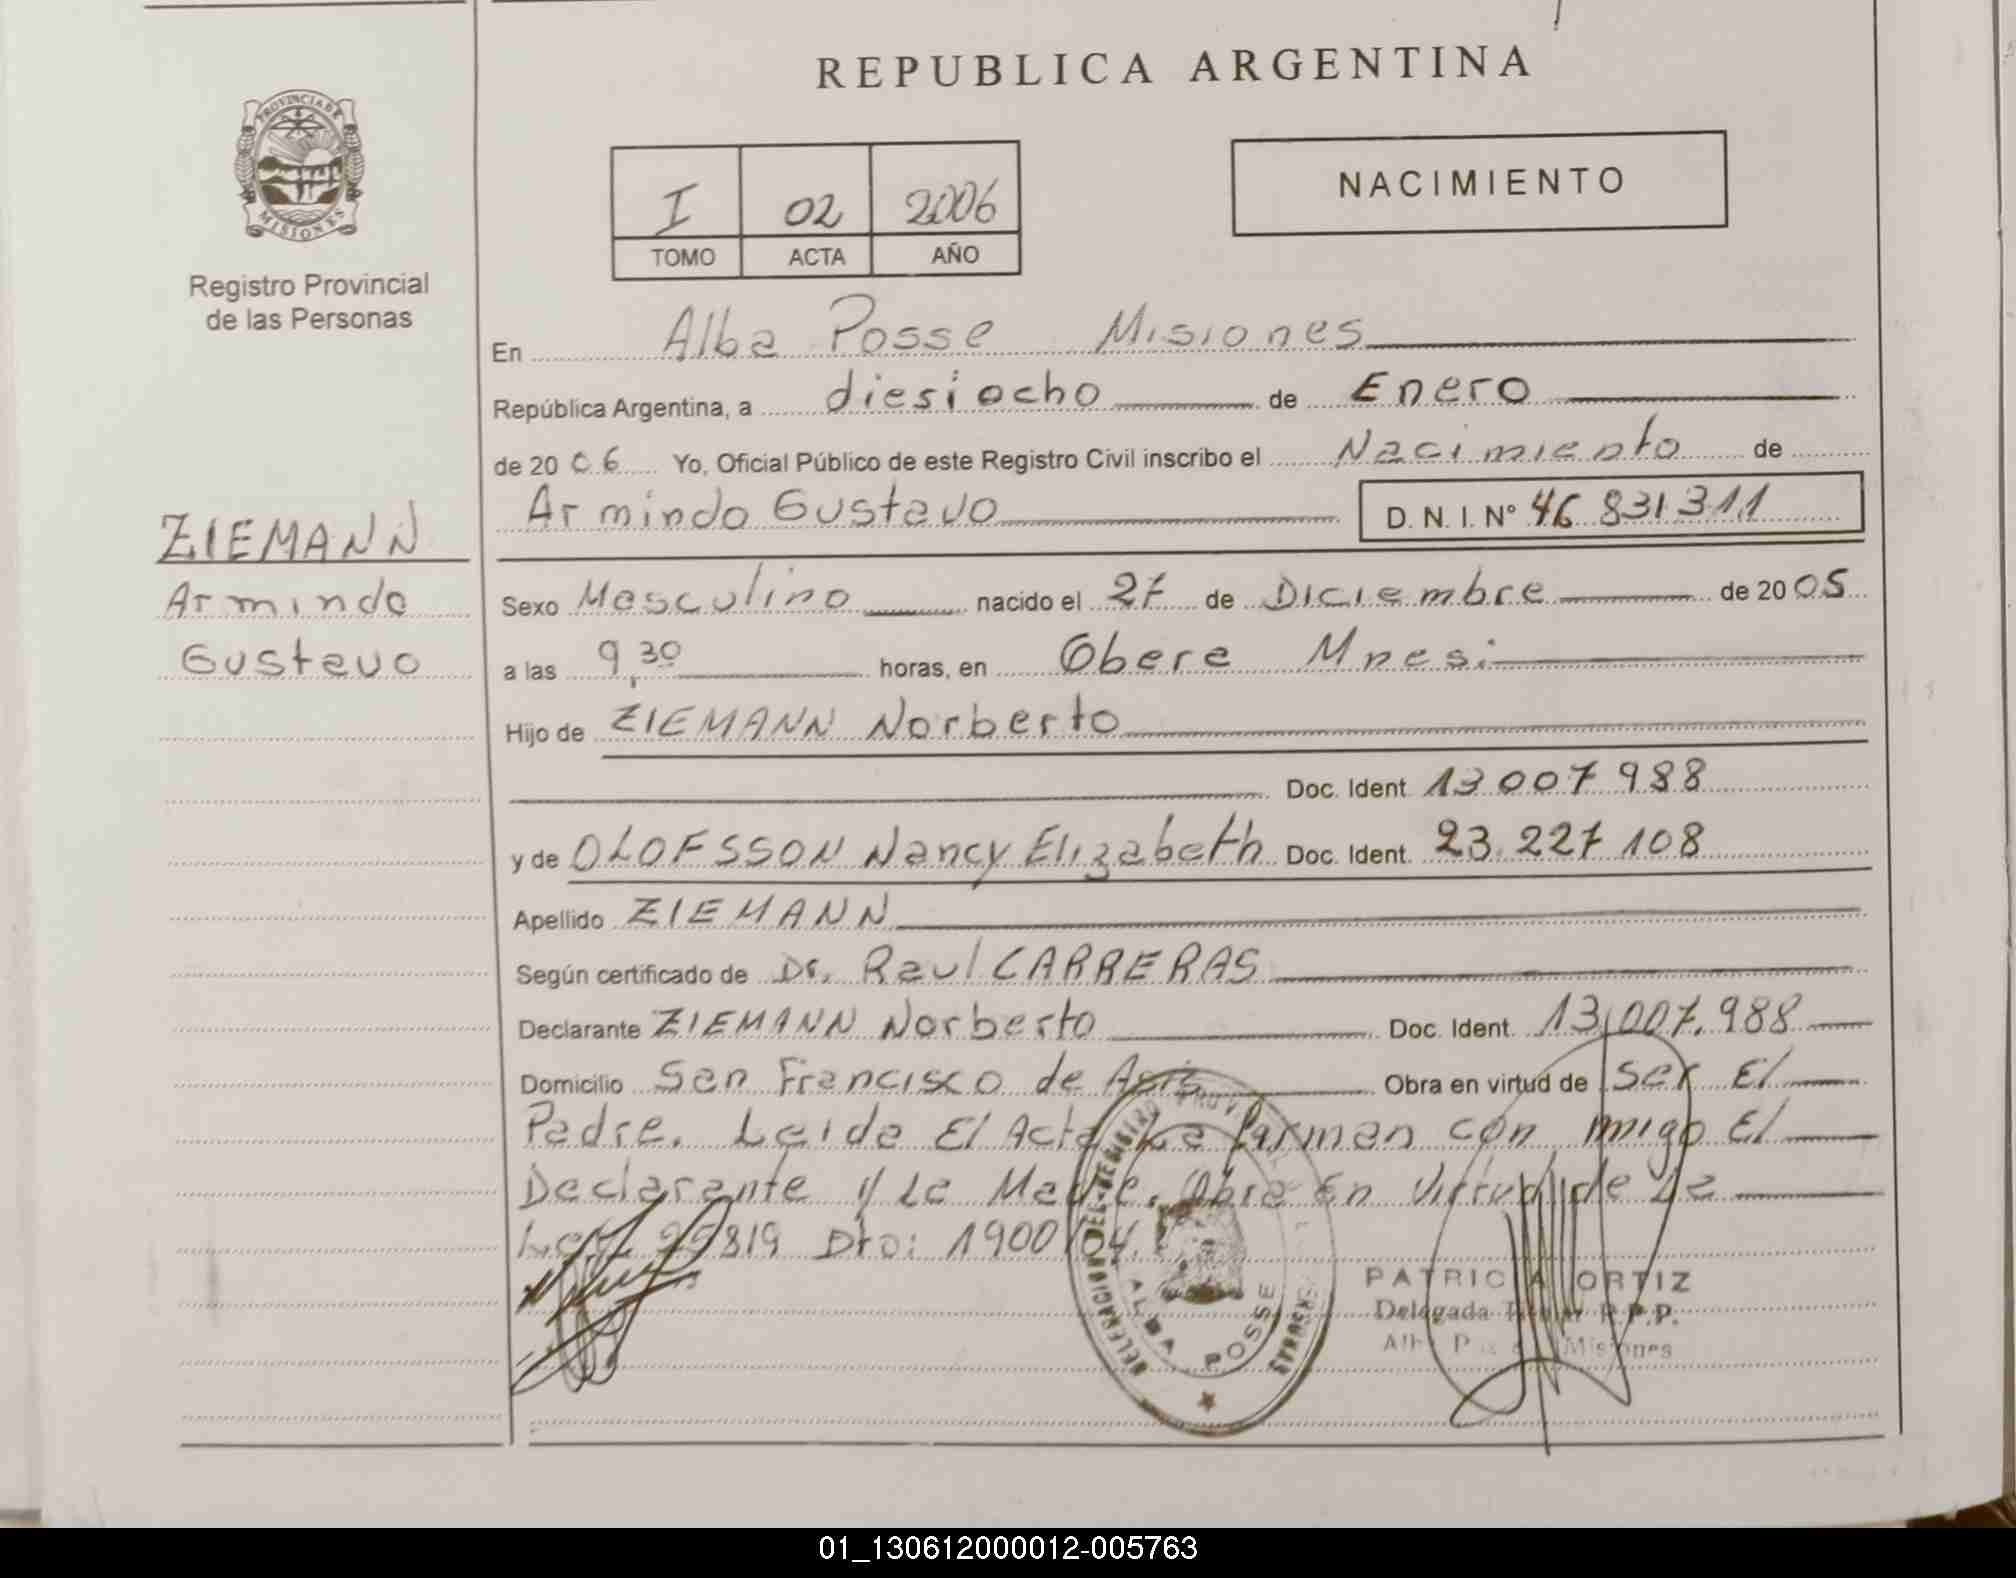 REPUBLICA ARGENTINA
PROVINCIA DE
MISIONES
Registro Provincial
de las Personas
I 02 2006
TOMO ACTA AÑO
NACIMIENTO
En Alba Posse Misiones
República Argentina, a diesiocho de Enero
de 2006 Yo, Oficial Público de este Registro Civil inscribo el Nacimiento de
Armindo Gustavo D. N. I. N° 46 831311
ZIEMANN
Armindo
Gustavo
Sexo Masculino nacido el 27 de Diciembre de 2005
a las 9,30 horas, en Obera Mnes.
Hijo de ZIEMANN Norberto
Doc. Ident. 13 007 988
y de OLOFSSON Nancy Elizabeth Doc. Ident. 23.227 108
Apellido ZIEMANN
Según certificado de Dr. Raul CARRERAS
Declarante ZIEMANN Norberto Doc. Ident. 13,007.988
Domicilio San Francisco de Asis Obra en virtud de Ser El
Padre. Leida El Acta La firman con migo El
Declarante y La Madre. Obra En Virtud de La
25819 Dto: 1900/04.
DELEGACION DEL REGISTRO PROVINCIAL
ALBA POSSE
PATRICIA ORTIZ
Delegada Titular R.P.P.
Alba Posse Misiones
01_130612000012-005763